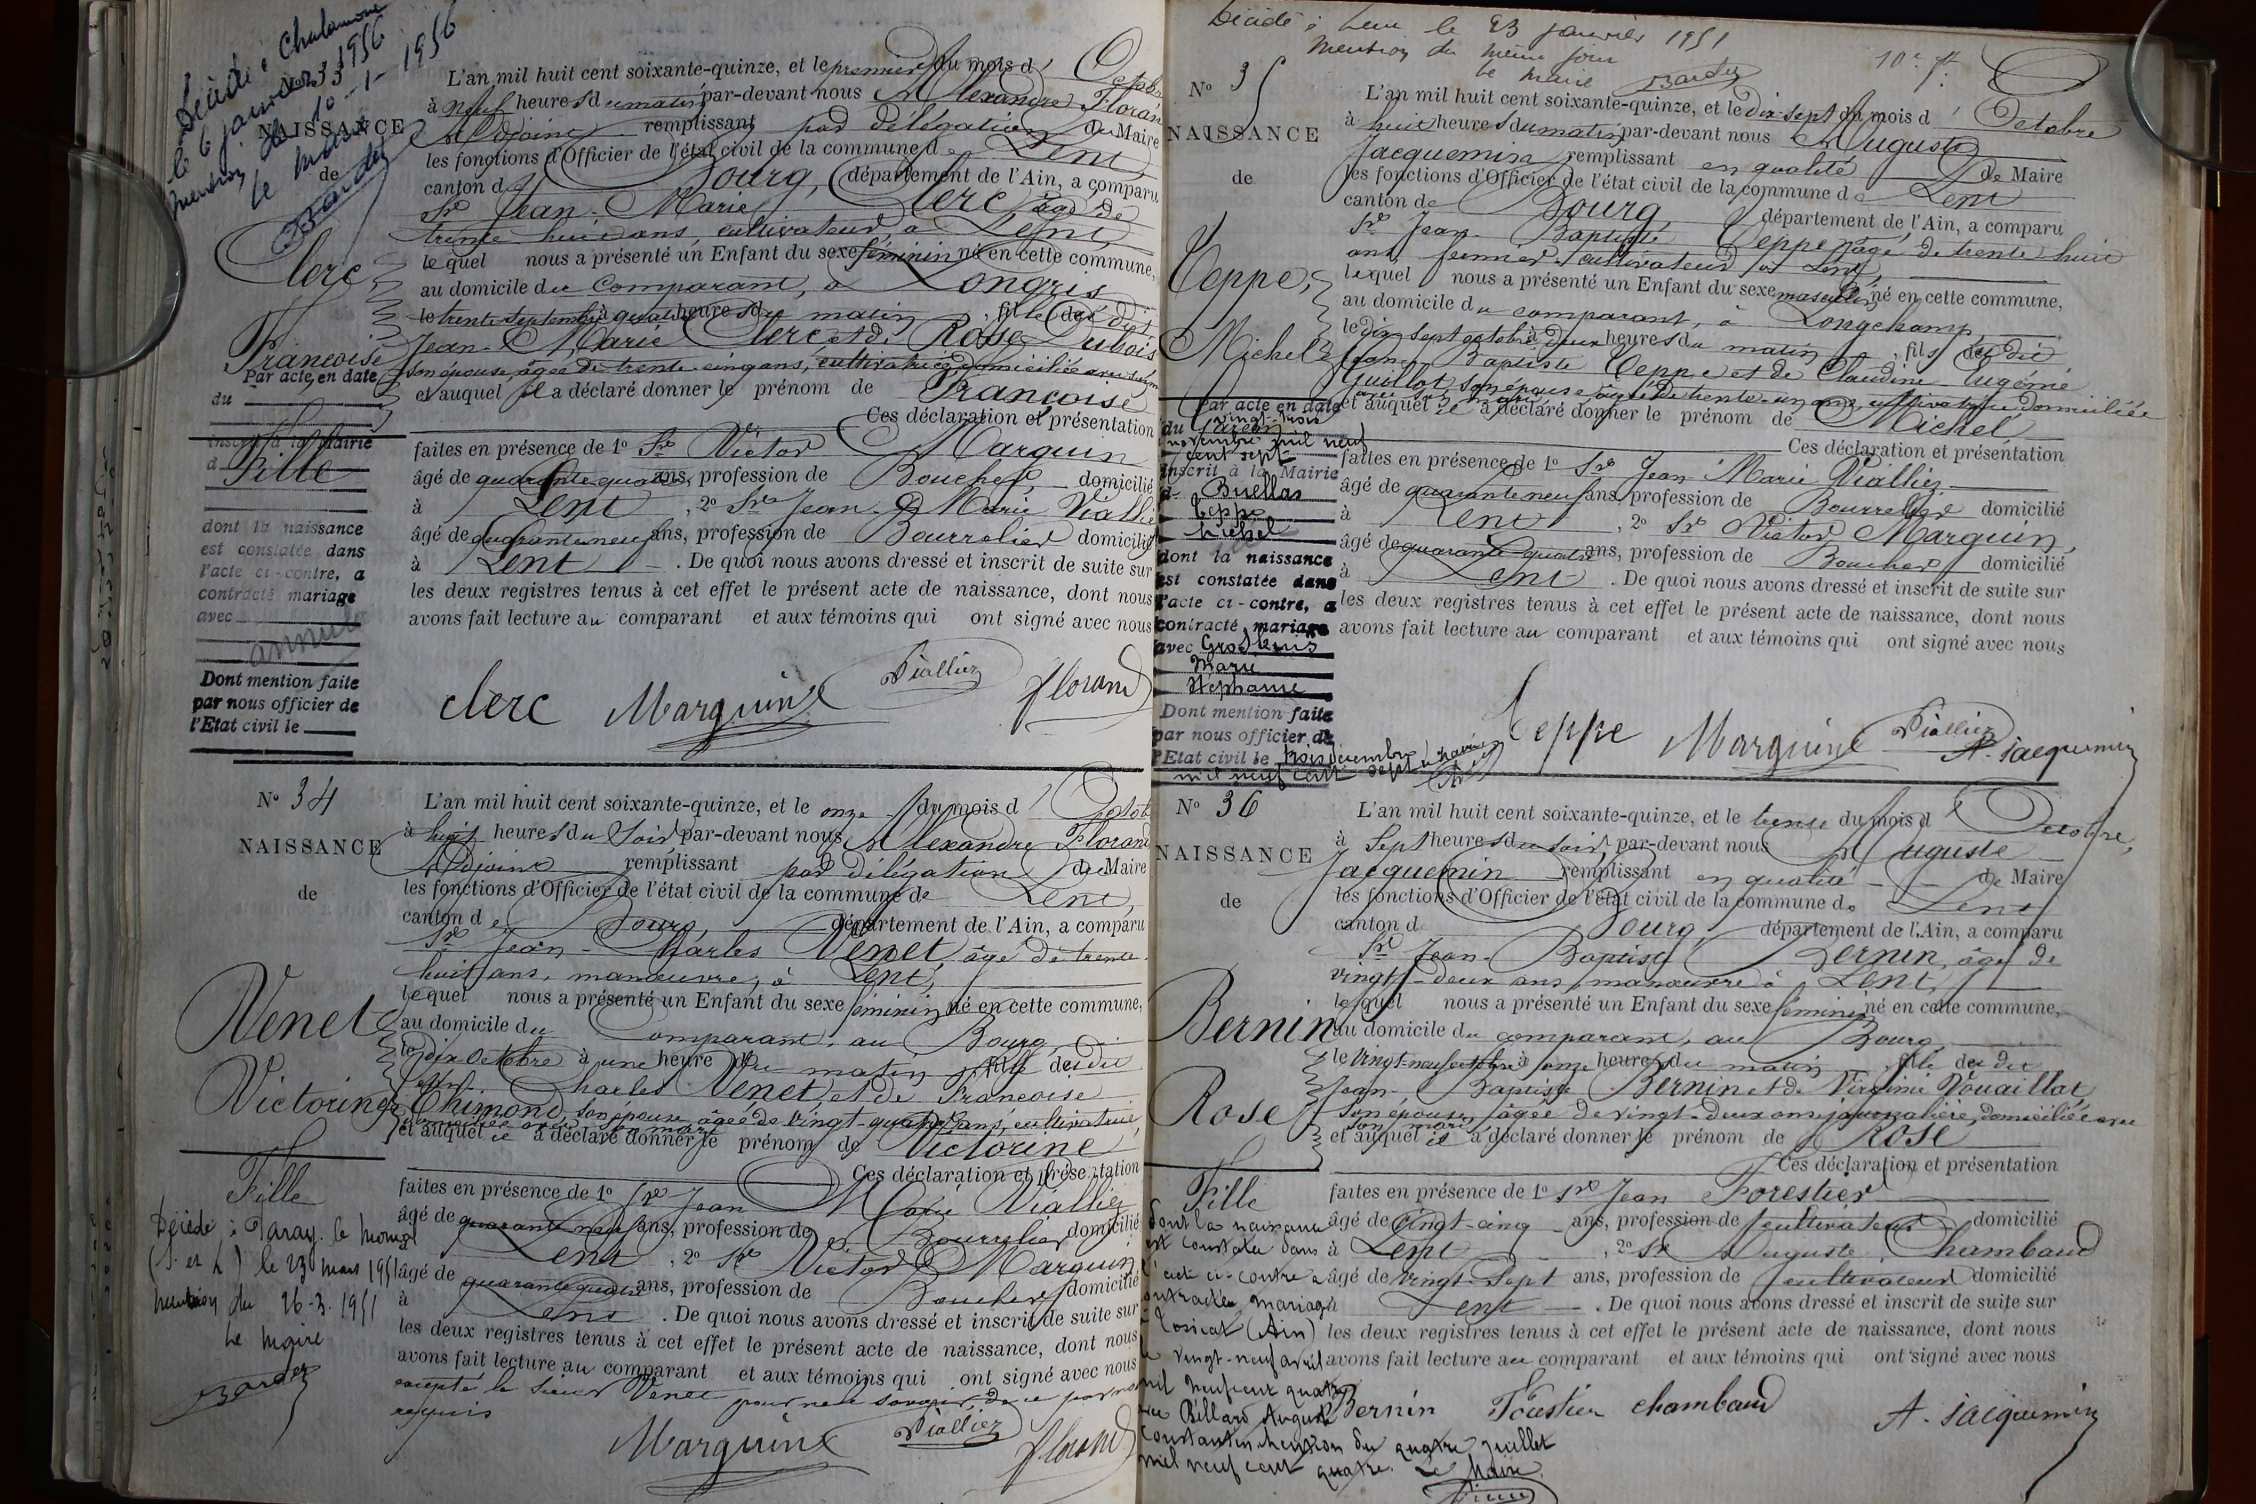 Décédé à Chalamont
le 6 janvier 1956
Mention du 10-1-1956
le maire
Barder
NAISSANCE
de
Clerc
Françoise
Par acte en date
du
inscrit à la Mairie
d
Fille
dont la naissance
est constatée dans
l'acte ci-contre, a
contracté mariage
avec
annulé
Dont mention faite
par nous officier de
l'Etat civil le
L'an mil huit cent soixante-quinze, et le premier du mois d'Octobre
à neuf heures du matin par-devant nous Alexandre Florand
Adjoint remplissant par délégation du Maire
les fonctions d'Officier de l'état civil de la commune de Lent
canton de Bourg, département de l'Ain, a comparu
Sr Jean-Marie Clerc âgé de
trente huit ans, cultivateur à Lent
lequel nous a présenté un Enfant du sexe féminin né en cette commune,
au domicile du comparant, à Longris
le trente septembre à quatre heures du matin, fille des dit
Jean-Marie Clerc et de Rose Dubois
son épouse, âgée de trente cinq ans, cultivatrice domiciliée avec
et auquel il a déclaré donner le prénom de Françoise
Ces déclaration et présentation
faites en présence de 1º Sr Victor Marguin
âgé de quarante quatre ans, profession de Boucher domicilié
à Lent, 2º Sr Jean-Marie Viallier
âgé de quarante neuf ans, profession de Bourrelier domicilié
à Lent. De quoi nous avons dressé et inscrit de suite sur
les deux registres tenus à cet effet le présent acte de naissance, dont nous
avons fait lecture au comparant et aux témoins qui ont signé avec nous
clerc Marguin Viallier florand
Nº 34
NAISSANCE
de
Venet
Victorine
Fille
Décédé à Paray le Monial
(S. et L) le 23 mars 1951
Mention du 26-3-1951
Le Maire
Barder
L'an mil huit cent soixante-quinze, et le onze du mois d'Octobre
à huit heures du Soir par-devant nous Alexandre Florand
Adjoint remplissant par délégation du Maire
les fonctions d'Officier de l'état civil de la commune de Lent,
canton de Bourg département de l'Ain, a comparu
Sr Jean-Charles Venet, âgé de trente
huit ans, manœuvre, à Lent,
lequel nous a présenté un Enfant du sexe féminin né en cette commune,
au domicile du comparant, au Bourg
le dix Octobre à une heure du matin, fille des dit
Jean-Charles Venet et de Françoise
Thimond, son épouse âgée de vingt-quatre ans, cultivatrice,
domiciliée avec son mari
et auquel il a déclaré donner le prénom de Victorine
Ces déclaration et présentation
faites en présence de 1º Sr Jean Marie Viallier
âgé de quarante neuf ans, profession de Bourrelier domicilié
à Lent, 2º Sr Victor Marguin,
âgé de quarante quatre ans, profession de Boucher domicilié
à Lent. De quoi nous avons dressé et inscrit de suite sur
les deux registres tenus à cet effet le présent acte de naissance, dont nous
avons fait lecture au comparant et aux témoins qui ont signé avec nous
excepté le sieur Venet pour ne le savoir, de ce par nous
requis
Marguin Viallier florand
Décédé à Lent le 23 janvier 1951
Mention du même jour
Le maire Barder
Nº 35
NAISSANCE
de
Teppe,
Michel
Par acte en date
du vingt-trois
novembre mil neuf
cent sept
inscrit à la Mairie
d Buellas
Teppe
Michel
dont la naissance
est constatée dans
l'acte ci-contre, a
contracté mariage
avec Gros
Marie
Stéphanie
Dont mention faite
par nous officier de
l'Etat civil le trois décembre
mil neuf cent sept
L'an mil huit cent soixante-quinze, et le dix sept du mois d'Octobre
à huit heures du matin par-devant nous Auguste
Jacquemin remplissant en qualité de Maire
les fonctions d'Officier de l'état civil de la commune de Lent
canton de Bourg département de l'Ain, a comparu
Sr Jean-Baptiste Teppe, âgé de trente huit
ans, fermier cultivateur à Lent,
lequel nous a présenté un Enfant du sexe masculin né en cette commune,
au domicile du comparant, à Longchamp,
le dix sept octobre à deux heures du matin, fils des dit
Jean Baptiste Teppe et de Claudine Eugénie
Guillot, son épouse âgée de trente-un ans, cultivatrice domiciliée
avec son mari,
et auquel il a déclaré donner le prénom de Michel
Ces déclaration et présentation
faites en présence de 1º Sr Jean Marie Viallier
âgé de quarante neuf ans, profession de Bourrelier domicilié
à Lent, 2º Sr Victor Marguin,
âgé de quarante quatre ans, profession de Boucher domicilié
à Lent. De quoi nous avons dressé et inscrit de suite sur
les deux registres tenus à cet effet le présent acte de naissance, dont nous
avons fait lecture au comparant et aux témoins qui ont signé avec nous
Teppe Marguin Viallier A. Jacquemin
Nº 36
NAISSANCE
de
Bernin
Rose
Fille
Dont la naissance
est constatée dans
l'acte ci-contre a
contracté mariage
à Dosiat (Ain)
le vingt-neuf avril
mil neuf cent quatre
avec Billard Auguste
Constantin. Mention du quatre juillet
mil neuf cent quatre. Le Maire
L'an mil huit cent soixante-quinze, et le trente du mois d'Octobre,
à Sept heures du soir, par-devant nous Auguste
Jacquemin remplissant en qualité de Maire
les fonctions d'Officier de l'état civil de la commune de Lent
canton d Bourg, département de l'Ain, a comparu
Sr Jean-Baptiste Bernin, âgé de
vingt-deux ans, manœuvre à Lent,
lequel nous a présenté un Enfant du sexe féminin né en cette commune,
au domicile du comparant, au Bourg,
le vingt-neuf octobre à onze heures du matin, fille des dit
Jean-Baptiste Bernin et de Virginie Douaillat,
son épouse, âgée de vingt-deux ans, journalière, domiciliée avec
son mari
et auquel il a déclaré donner le prénom de Rose
Ces déclaration et présentation
faites en présence de 1º Sr Jean Forestier
âgé de vingt-cinq ans, profession de cultivateur domicilié
à Lent, 2º Sr Auguste Chambaud
âgé de vingt-sept ans, profession de cultivateur domicilié
à Lent. De quoi nous avons dressé et inscrit de suite sur
les deux registres tenus à cet effet le présent acte de naissance, dont nous
avons fait lecture au comparant et aux témoins qui ont signé avec nous
Bernin Forestier Chambaud A. Jacquemin